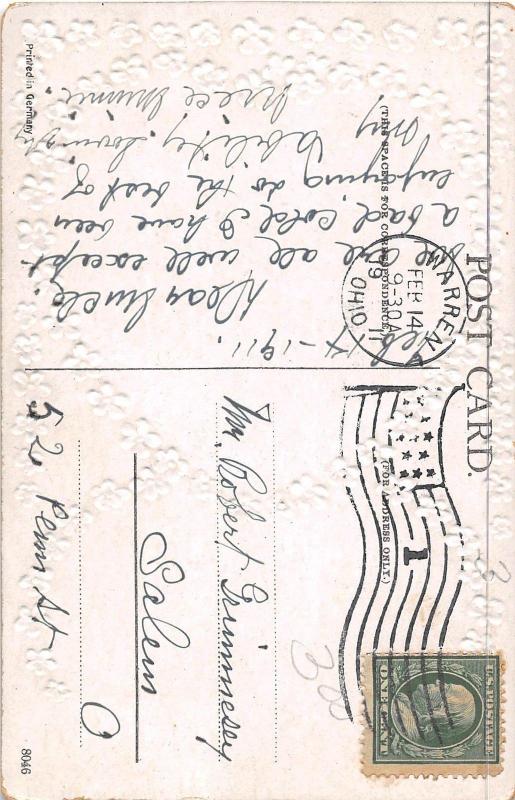 POST CARD
(THIS SPACE IS FOR CORRESPONDENCE.)
(FOR ADDRESS ONLY.)
WARREN
FEB 14
9-30A
19 11
OHIO
1
U.S. POSTAGE
ONE CENT
Feb 14-1911.
Dear Uncle:
We are all well except
a bad cold I have been
enjoying to the best of
my ability. Lovingly
niece Minnie.
Mr. Robert Grimmesey
Salem
O
52 Penn St
30
3
Printed in Germany
8046